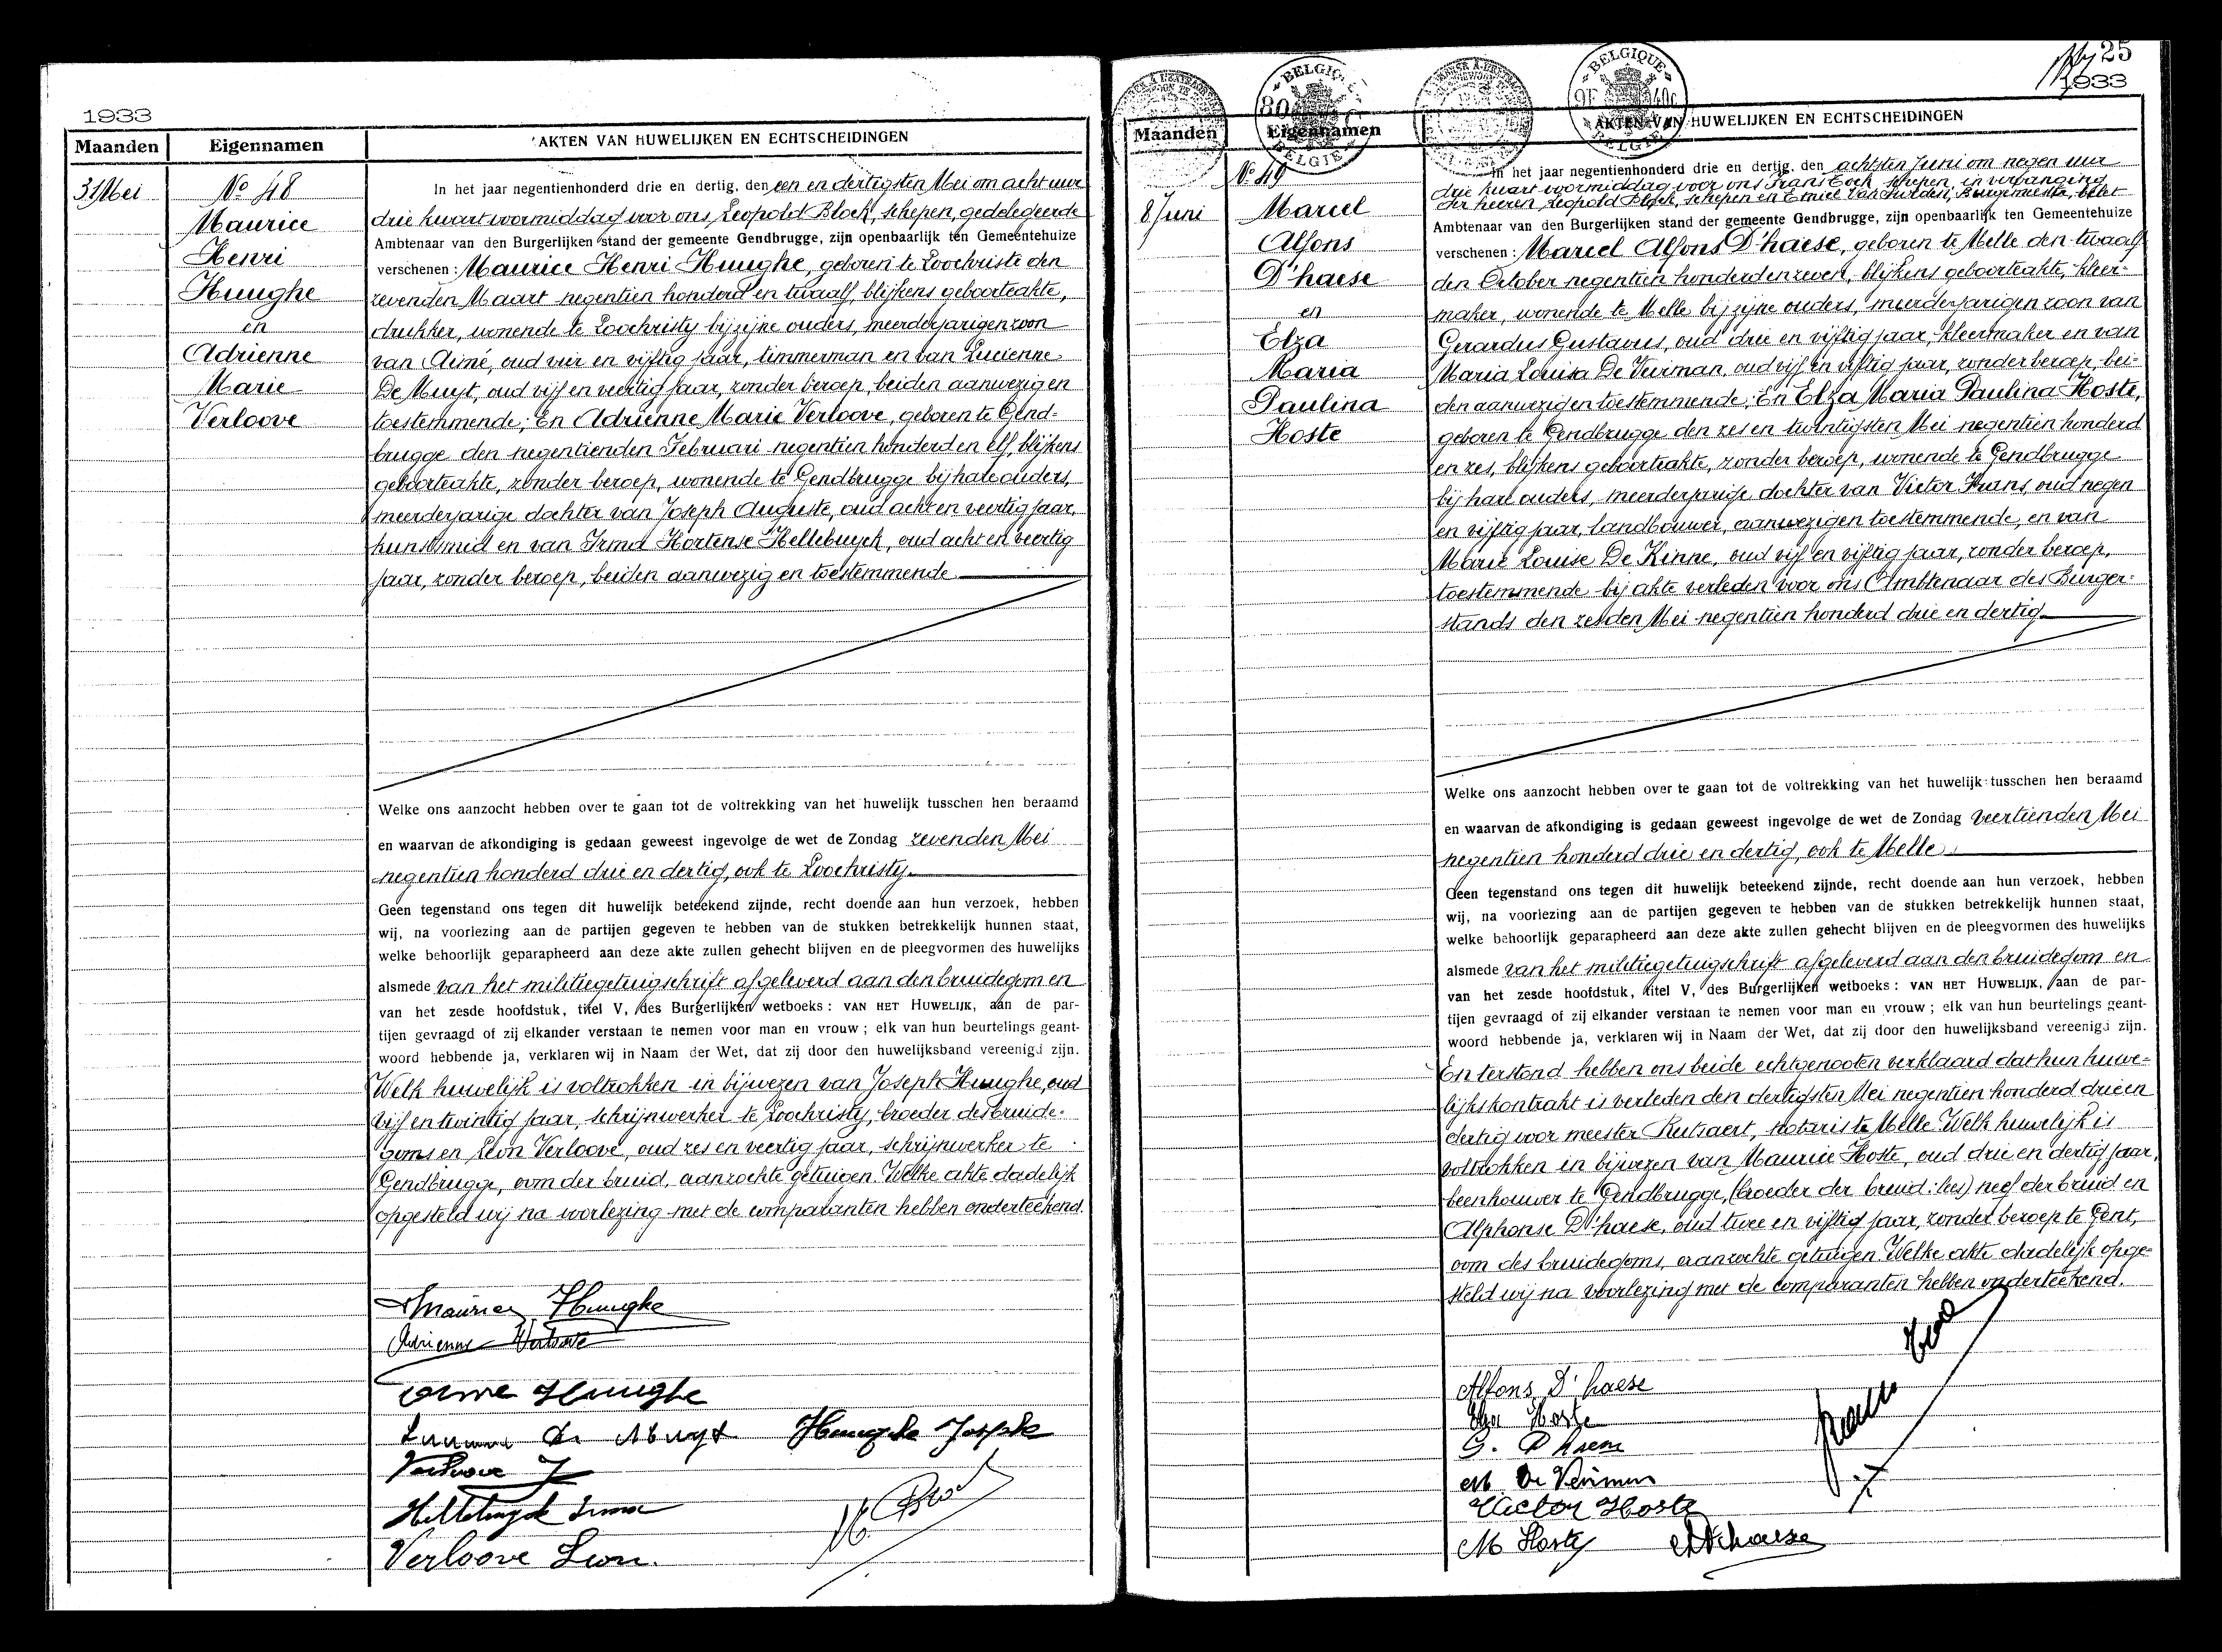 1933
Maanden Eigennamen AKTEN VAN HUWELIJKEN EN ECHTSCHEIDINGEN
31 Mei
No 48
Maurice
Henri
Huughe
en
Adrienne
Marie
Verloove
In het jaar negentienhonderd drie en dertig, den een en dertigsten Mei om acht uur
drie kwart voormiddag voor ons, Leopold Block, schepen, gedelegeerde
Ambtenaar van den Burgerlijken stand der gemeente Gendbrugge, zijn openbaarlijk ten Gemeentehuize
verschenen : Maurice Henri Huughe, geboren te Loochristi den
zevenden Maart negentien honderd en twaalf, blijkens geboorteakte,
drukker, wonende te Loochristy bij zijne ouders, meerderjarigen zoon
van Aimé, oud vier en vijftig jaar, timmerman en van Lucienne
De Muyt, oud vijf en veertig jaar, zonder beroep, beiden aanwezig en
toestemmende; En Adrienne Marie Verloove, geboren te Gend-
brugge den negentienden Februari negentien honderd en elf, blijkens
geboorteakte, zonder beroep, wonende te Gendbrugge bij hare ouders,
meerderjarige dochter van Joseph Auguste, oud acht en veertig jaar,
kunstsmid en van Irma Hortense Hellebuyck, oud acht en veertig
jaar, zonder beroep, beiden aanwezig en toestemmende
Welke ons aanzocht hebben over te gaan tot de voltrekking van het huwelijk tusschen hen beraamd
en waarvan de afkondiging is gedaan geweest ingevolge de wet de Zondag zevenden Mei
negentien honderd drie en dertig, ook te Loochristy.
Geen tegenstand ons tegen dit huwelijk beteekend zijnde, recht doende aan hun verzoek, hebben
wij, na voorlezing aan de partijen gegeven te hebben van de stukken betrekkelijk hunnen staat,
welke behoorlijk geparapheerd aan deze akte zullen gehecht blijven en de pleegvormen des huwelijks
alsmede van het militiegetuigschrift afgeleverd aan den bruidegom en
van het zesde hoofdstuk, titel V, des Burgerlijken wetboeks : VAN HET HUWELIJK, aan de par-
tijen gevraagd of zij elkander verstaan te nemen voor man en vrouw ; elk van hun beurtelings geant-
woord hebbende ja, verklaren wij in Naam der Wet, dat zij door den huwelijksband vereenigd zijn.
Welk huwelijk is voltrokken in bijwezen van Joseph Huughe, oud
vijf en twintig jaar, schrijnwerker te Loochristy, broeder des bruide-
goms en Leon Verloove, oud zes en veertig jaar, schrijnwerker te
Gendbrugge, oom der bruid, aanzochte getuigen. Welke akte dadelijk
opgesteld wij na voorlezing met de comparanten hebben onderteekend.
Maurice Huughe
Adrienne Verloove
Aimé Huughe
Lucienne De Muyt Huughe Joseph
Verloove J
Hellebuyck Irma
Verloove Leon.
25
1933
BELGIQUE BELGIE
Maanden Eigennamen AKTEN VAN HUWELIJKEN EN ECHTSCHEIDINGEN
8 Juni
No 49
Marcel
Alfons
D'haese
en
Elza
Maria
Paulina
Hoste
In het jaar negentienhonderd drie en dertig, den achtsten Juni om negen uur
drie kwart voormiddag voor ons Frans Cock schepen, in vervanging
der heeren, Leopold Block, schepen en Emiel Van Hurden, Burgemeester, belet
Ambtenaar van den Burgerlijken stand der gemeente Gendbrugge, zijn openbaarlijk ten Gemeentehuize
verschenen : Marcel Alfons D'haese, geboren te Melle den twaalf
den October negentien honderd en zeven, blijkens geboorteakte, kleer-
maker, wonende te Melle bij zijne ouders, meerderjarigen zoon van
Gerardus Gustavus, oud drie en vijftig jaar, kleermaker en van
Maria Louisa De Veirman, oud vijf en vijftig jaar, zonder beroep, bei-
den aanwezig en toestemmende; En Elza Maria Paulina Hoste,
geboren te Gendbrugge den zes en twintigsten Mei negentien honderd
en zes, blijkens geboorteakte, zonder beroep, wonende te Gendbrugge
bij hare ouders, meerderjarige dochter van Victor Frans, oud negen
en vijftig jaar, landbouwer, aanwezig en toestemmende, en van
Marie Louise De Kinne, oud vijf en vijftig jaar, zonder beroep,
toestemmende bij akte verleden voor ons Ambtenaar des Burger-
stands den zesden Mei negentien honderd drie en dertig
Welke ons aanzocht hebben over te gaan tot de voltrekking van het huwelijk tusschen hen beraamd
en waarvan de afkondiging is gedaan geweest ingevolge de wet de Zondag veertienden Mei
negentien honderd drie en dertig, ook te Melle.
Geen tegenstand ons tegen dit huwelijk beteekend zijnde, recht doende aan hun verzoek, hebben
wij, na voorlezing aan de partijen gegeven te hebben van de stukken betrekkelijk hunnen staat,
welke behoorlijk geparapheerd aan deze akte zullen gehecht blijven en de pleegvormen des huwelijks
alsmede van het militiegetuigschrift afgeleverd aan den bruidegom en
van het zesde hoofdstuk, titel V, des Burgerlijken wetboeks : VAN HET HUWELIJK, aan de par-
tijen gevraagd of zij elkander verstaan te nemen voor man en vrouw ; elk van hun beurtelings geant-
woord hebbende ja, verklaren wij in Naam der Wet, dat zij door den huwelijksband vereenigd zijn.
En terstond hebben ons beide echtgenooten verklaard dat hun huwe-
lijkskontrakt is verleden den dertigsten Mei negentien honderd drie en
dertig voor meester Rutsaert, notaris te Melle. Welk huwelijk is
voltrokken in bijwezen van Maurice Hoste, oud drie en dertig jaar,
beenhouwer te Gendbrugge, (broeder der bruid : lees) neef der bruid en
Alphonse D'haese, oud twee en vijftig jaar, zonder beroep te Gent,
oom des bruidegoms, aanzochte getuigen. Welke akte dadelijk opge-
steld wij na voorlezing met de comparanten hebben onderteekend.
Alfons D'haese
Elza Hoste
G. D'haese
M De Veirman
Victor Hoste
M Hoste A D'haese